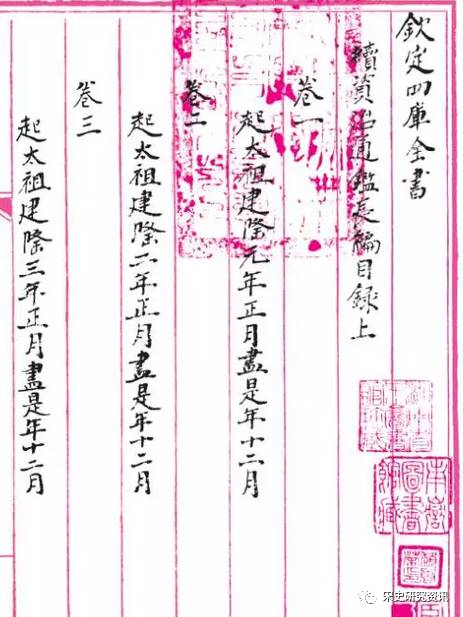 欽定四庫全書
續資治通鑑長編目録上
卷一
起太祖建隆元年正月盡是年十二月
卷二
起太祖建隆二年正月盡是年十二月
卷三
起太祖建隆三年正月盡是年十二月
宋史研究资讯